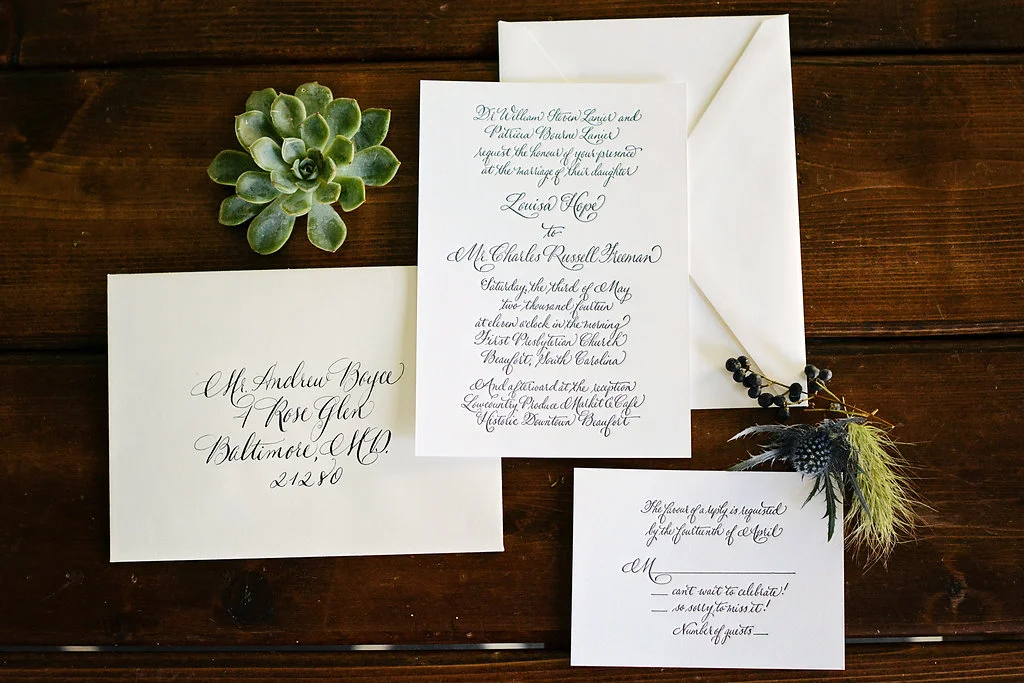 Dr William Steven Lanier and
Patricia Bourne Lanier
request the honour of your presence
at the marriage of their daughter
Louisa Hope
to
Mr. Charles Russell Freeman
Saturday, the third of May
two thousand fourteen
at eleven o'clock in the morning
First Presbyterian Church
Beaufort, South Carolina
And afterward at the reception
Lowcountry Produce Market & Café
Historic Downtown Beaufort
Mr. Andrew Boyce
4 Rose Glen
Baltimore, M.D.
21280
The favour of a reply is requested
by the fourteenth of April
M
can't wait to celebrate!
so sorry to miss it!
Number of guests